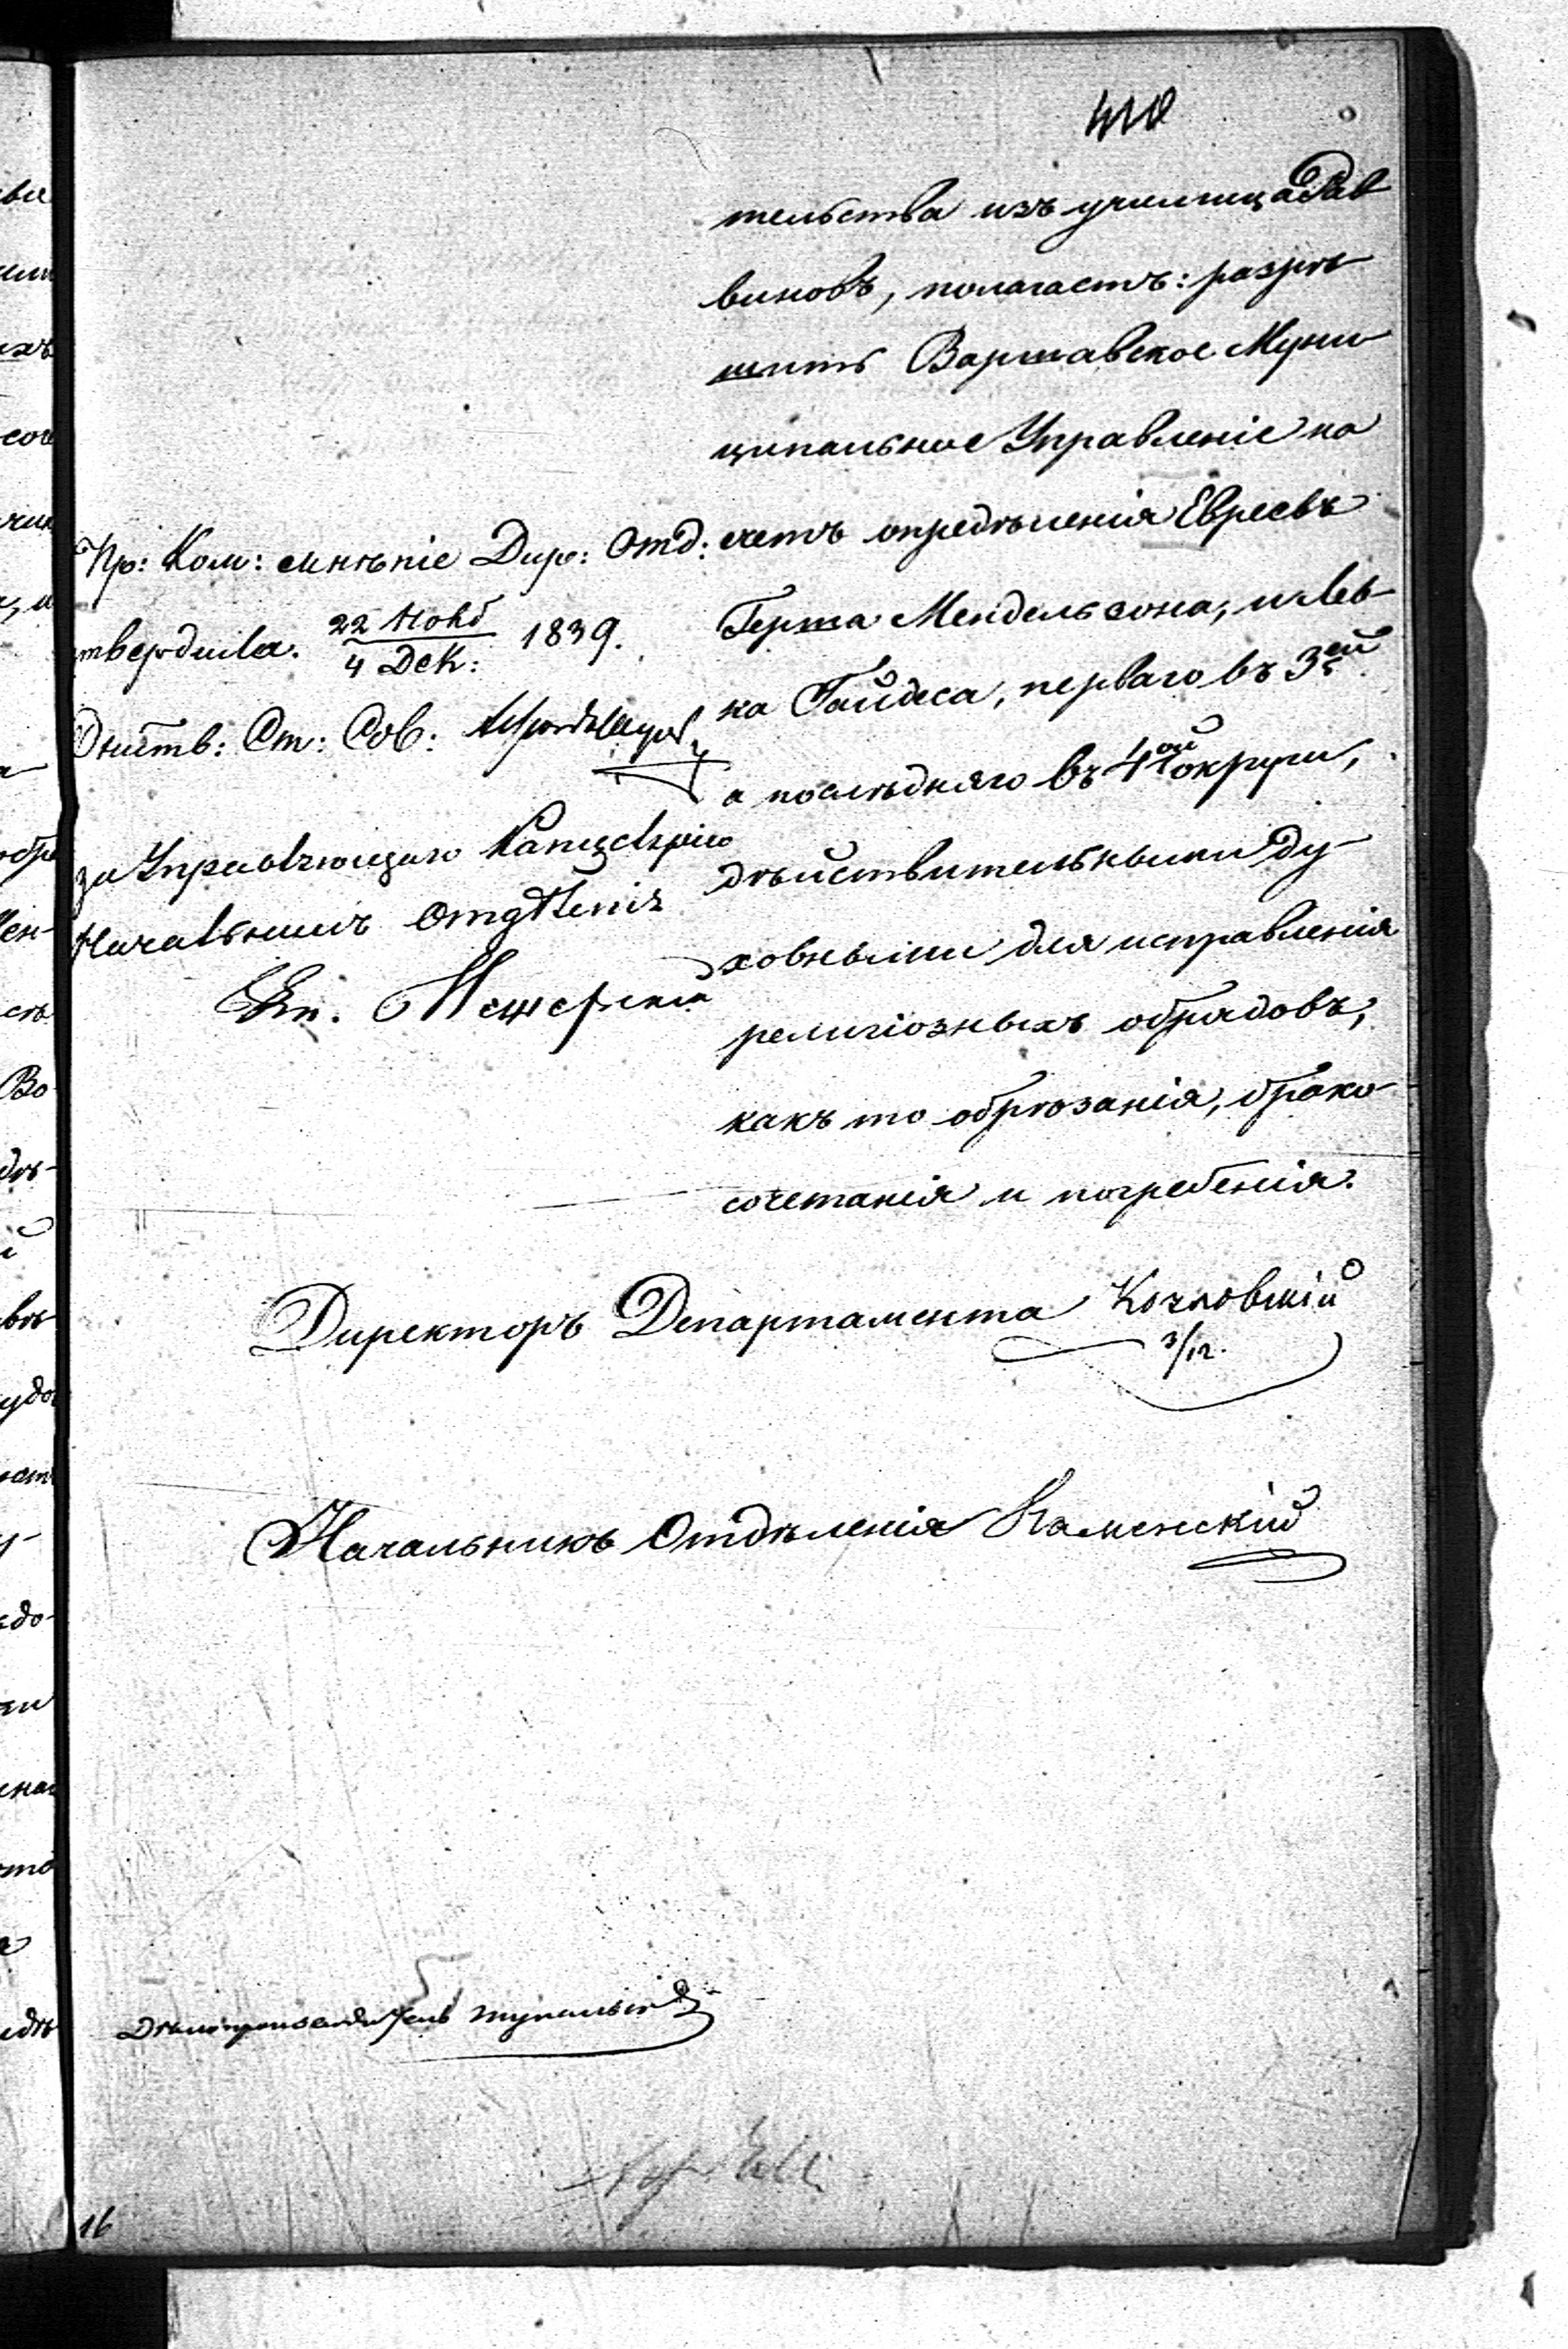 410
тельства изъ училища Рав-
виновъ, полагаетъ: разрѣ-
шить Варшавское Муни-
ципальное Управленіе на
счетъ опредѣленія Евреевъ
Герша Мендельзона, и Лев-
ка Гайдеса, перваго въ 3ей
а послѣдняго въ 4ой округи,
дѣйствительными Ду-
ховными для исправленія
религіозныхъ обрядовъ,
какъ то обрѣзанія, брако-
сочетанія и погребенія.
Пр: Ком: мнѣніе Дир: Отд:
твердила. 22 Нояб / 4 Дек: 1839.
Ст: Сов:
за Управляющаго Канцеляріею
Начальникъ Отдѣленія
Кн. Мещерскій
Директоръ Департамента Козловскій
3/12.
Начальникъ Отдѣленія Каменскій
Дѣлопроизводитель
16